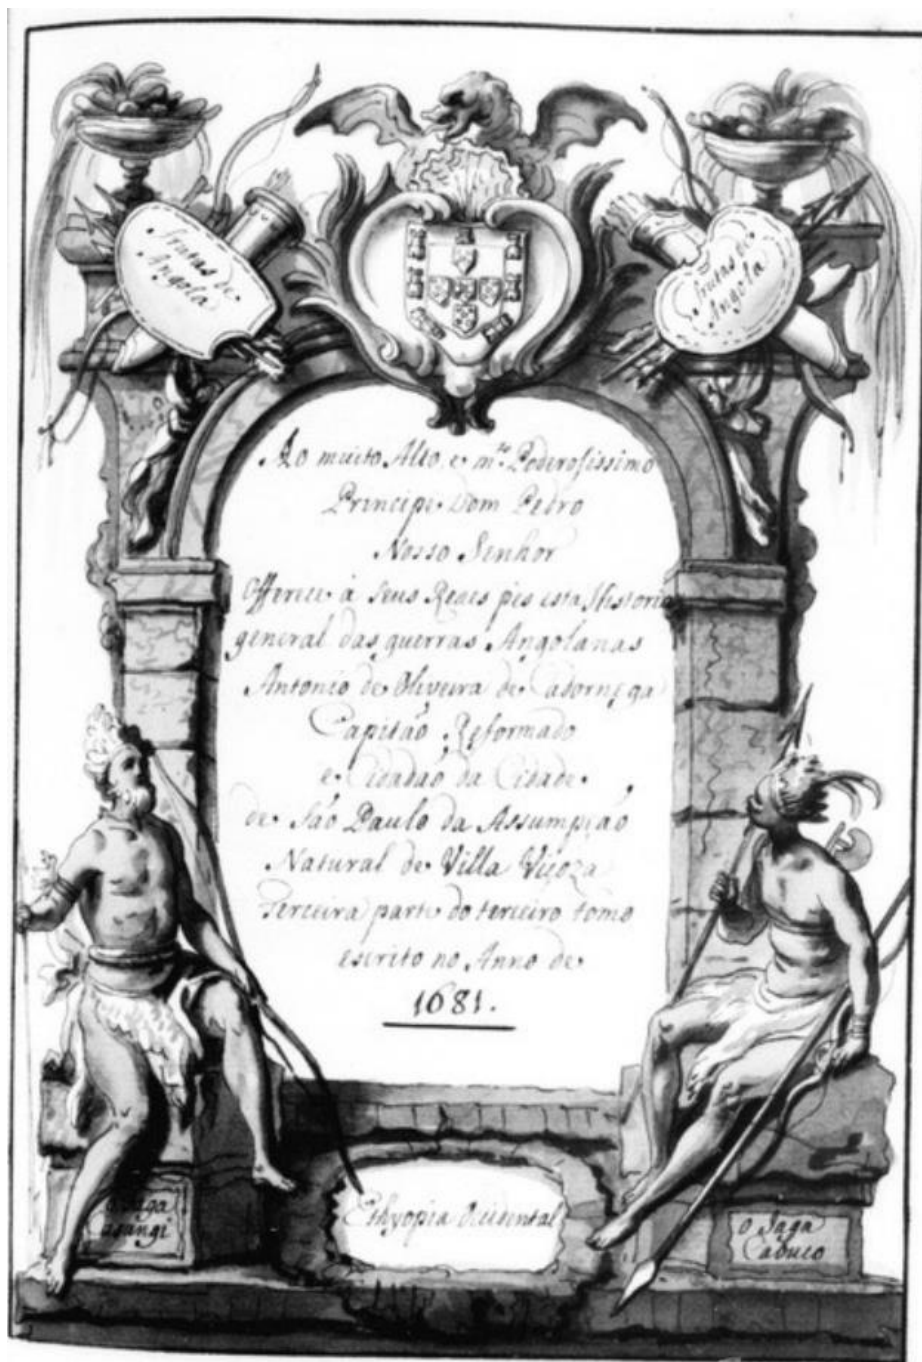 frutas de
Angola
frutas de
Angola
Ao muito Alto, e m.to Poderosissimo
Principe Dom Pedro
Nosso Senhor
Offerece à seus Reaes pes esta Historia
general das guerras Angolanas
Antonio de Oliveira de Cadornega
Capitaõ Reformado
e Cidadaõ da Cidade
de Saõ Paulo da Assumpçaõ
Natural de Villa Viçoza
Terceira parte do terceiro tomo
escrito no Anno de
1681.
O Jaga
Casangi
Ethyopia Occidental
O Jaga
Cabuco